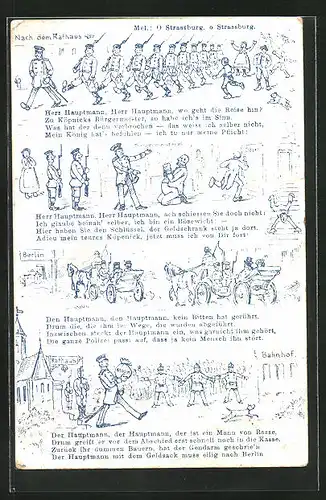 Mel.: O Strassburg, o Strassburg.
Nach dem Rathaus
Herr Hauptmann, Herr Hauptmann, wo geht die Reise hin?
Zu Köpnicks Bürgermeister, so habe ich's im Sinn.
Was hat der denn verbrochen — das weiss ich selber nicht,
Mein König hat's befohlen — ich tu nur meine Pflicht!
Herr Hauptmann, Herr Hauptmann, ach schiessen Sie doch nicht!
Ich glaube beinah' selber, ich bin ein Bösewicht!
Hier haben Sie den Schlüssel, der Geldschrank steht ja dort.
Adieu mein teures Köpenick, jetzt muss ich von Dir fort!
Berlin
Den Hauptmann, den Hauptmann, kein Bitten hat gerührt,
Drum die, die ihm im Wege, die wurden abgeführt.
Inzwischen steckt der Hauptmann ein, was garnicht ihm gehört,
Die ganze Polizei passt auf, dass ja kein Mensch ihn stört.
Rathaus
Bahnhof
Der Hauptmann, der Hauptmann, der ist ein Mann von Rasse,
Drum greift er vor dem Abschied erst schnell noch in die Kasse.
Zurück ihr dummen Bauern, hat der Gendarm geschrie'n
Der Hauptmann mit dem Geldsack muss eilig nach Berlin